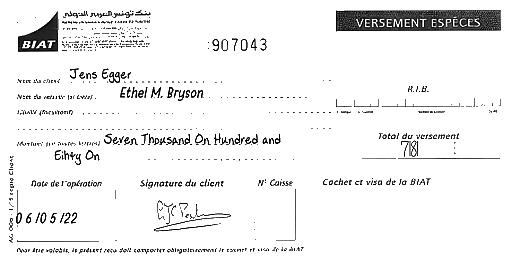 بنك تونس العربي الدولي
BIAT
VERSEMENT ESPÈCES
:907043
Nom du client Jens Egger
Nom du remettant (si tiers) Ethel M. Bryson
R.I.B.
Libellé (facultatif)
Montant (en toutes lettres) Seven Thousand On Hundred and
Eihty On
Total du versement
7181
Date de l'opération
Signature du client
N° Caisse
Cachet et visa de la BIAT
06/05/22
Pour être valable, le présent reçu doit comporter obligatoirement le cachet et visa de la BIAT